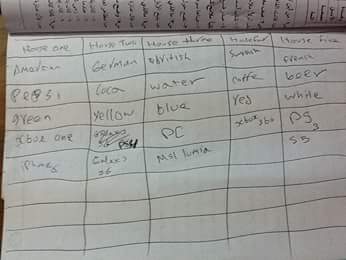 House one House Two House three House four House five
American German British French
PEPSI Coca water coffe beer
green yellow blue red white
xbox one PS4 PC xbox 360 PS3
iPhone 5 Galaxy S6 MSI lumia S5